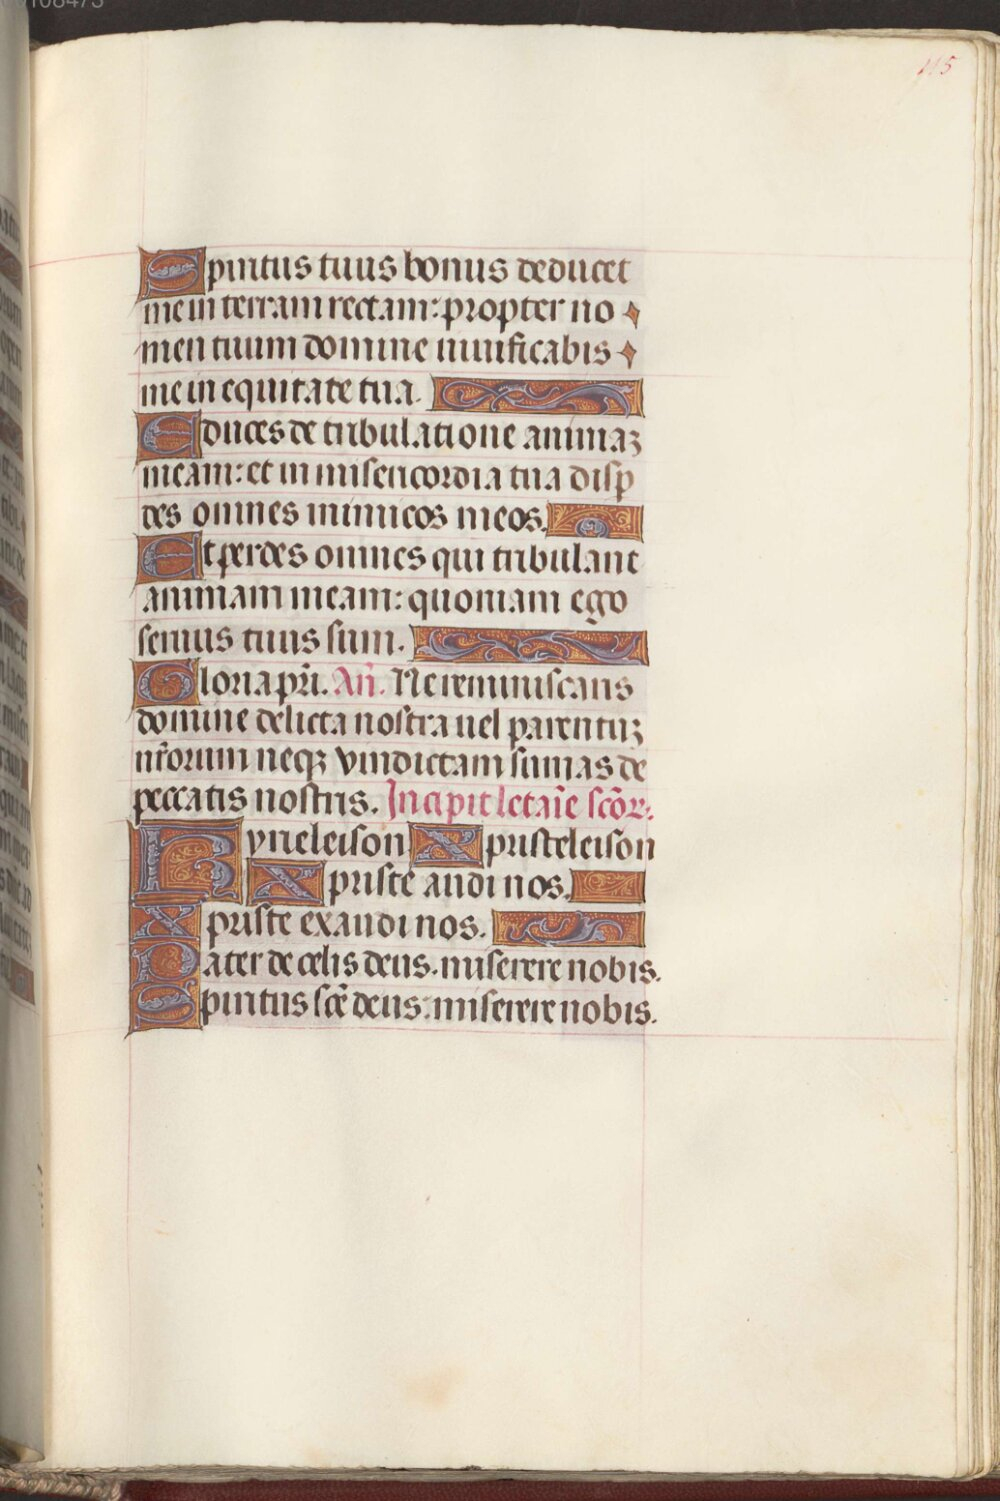 115
Spiritus tuus bonus deducet
me in terram rectam: propter no
men tuum domine uiuificabis
me in equitate tua.
Educes de tribulatione animaꝫ
meam: et in misericordia tua disꝑ
des omnes inimicos meos.
Et perdes omnes qui tribulant
animam meam: quoniam ego
seruus tuus sum.
Gloria pr̃i. An̄. Ne reminiscaris
domine delicta nostra uel parentuꝫ
nr̃orum neqꝫ vindictam sumas de
peccatis nostris. Incipit letaīe scōr:
Kyrieleison Xpristeleison
Xpriste audi nos.
Xpriste exaudi nos.
Pater de celis deus. miserere nobis.
Spiritus scē deus: miserere nobis.